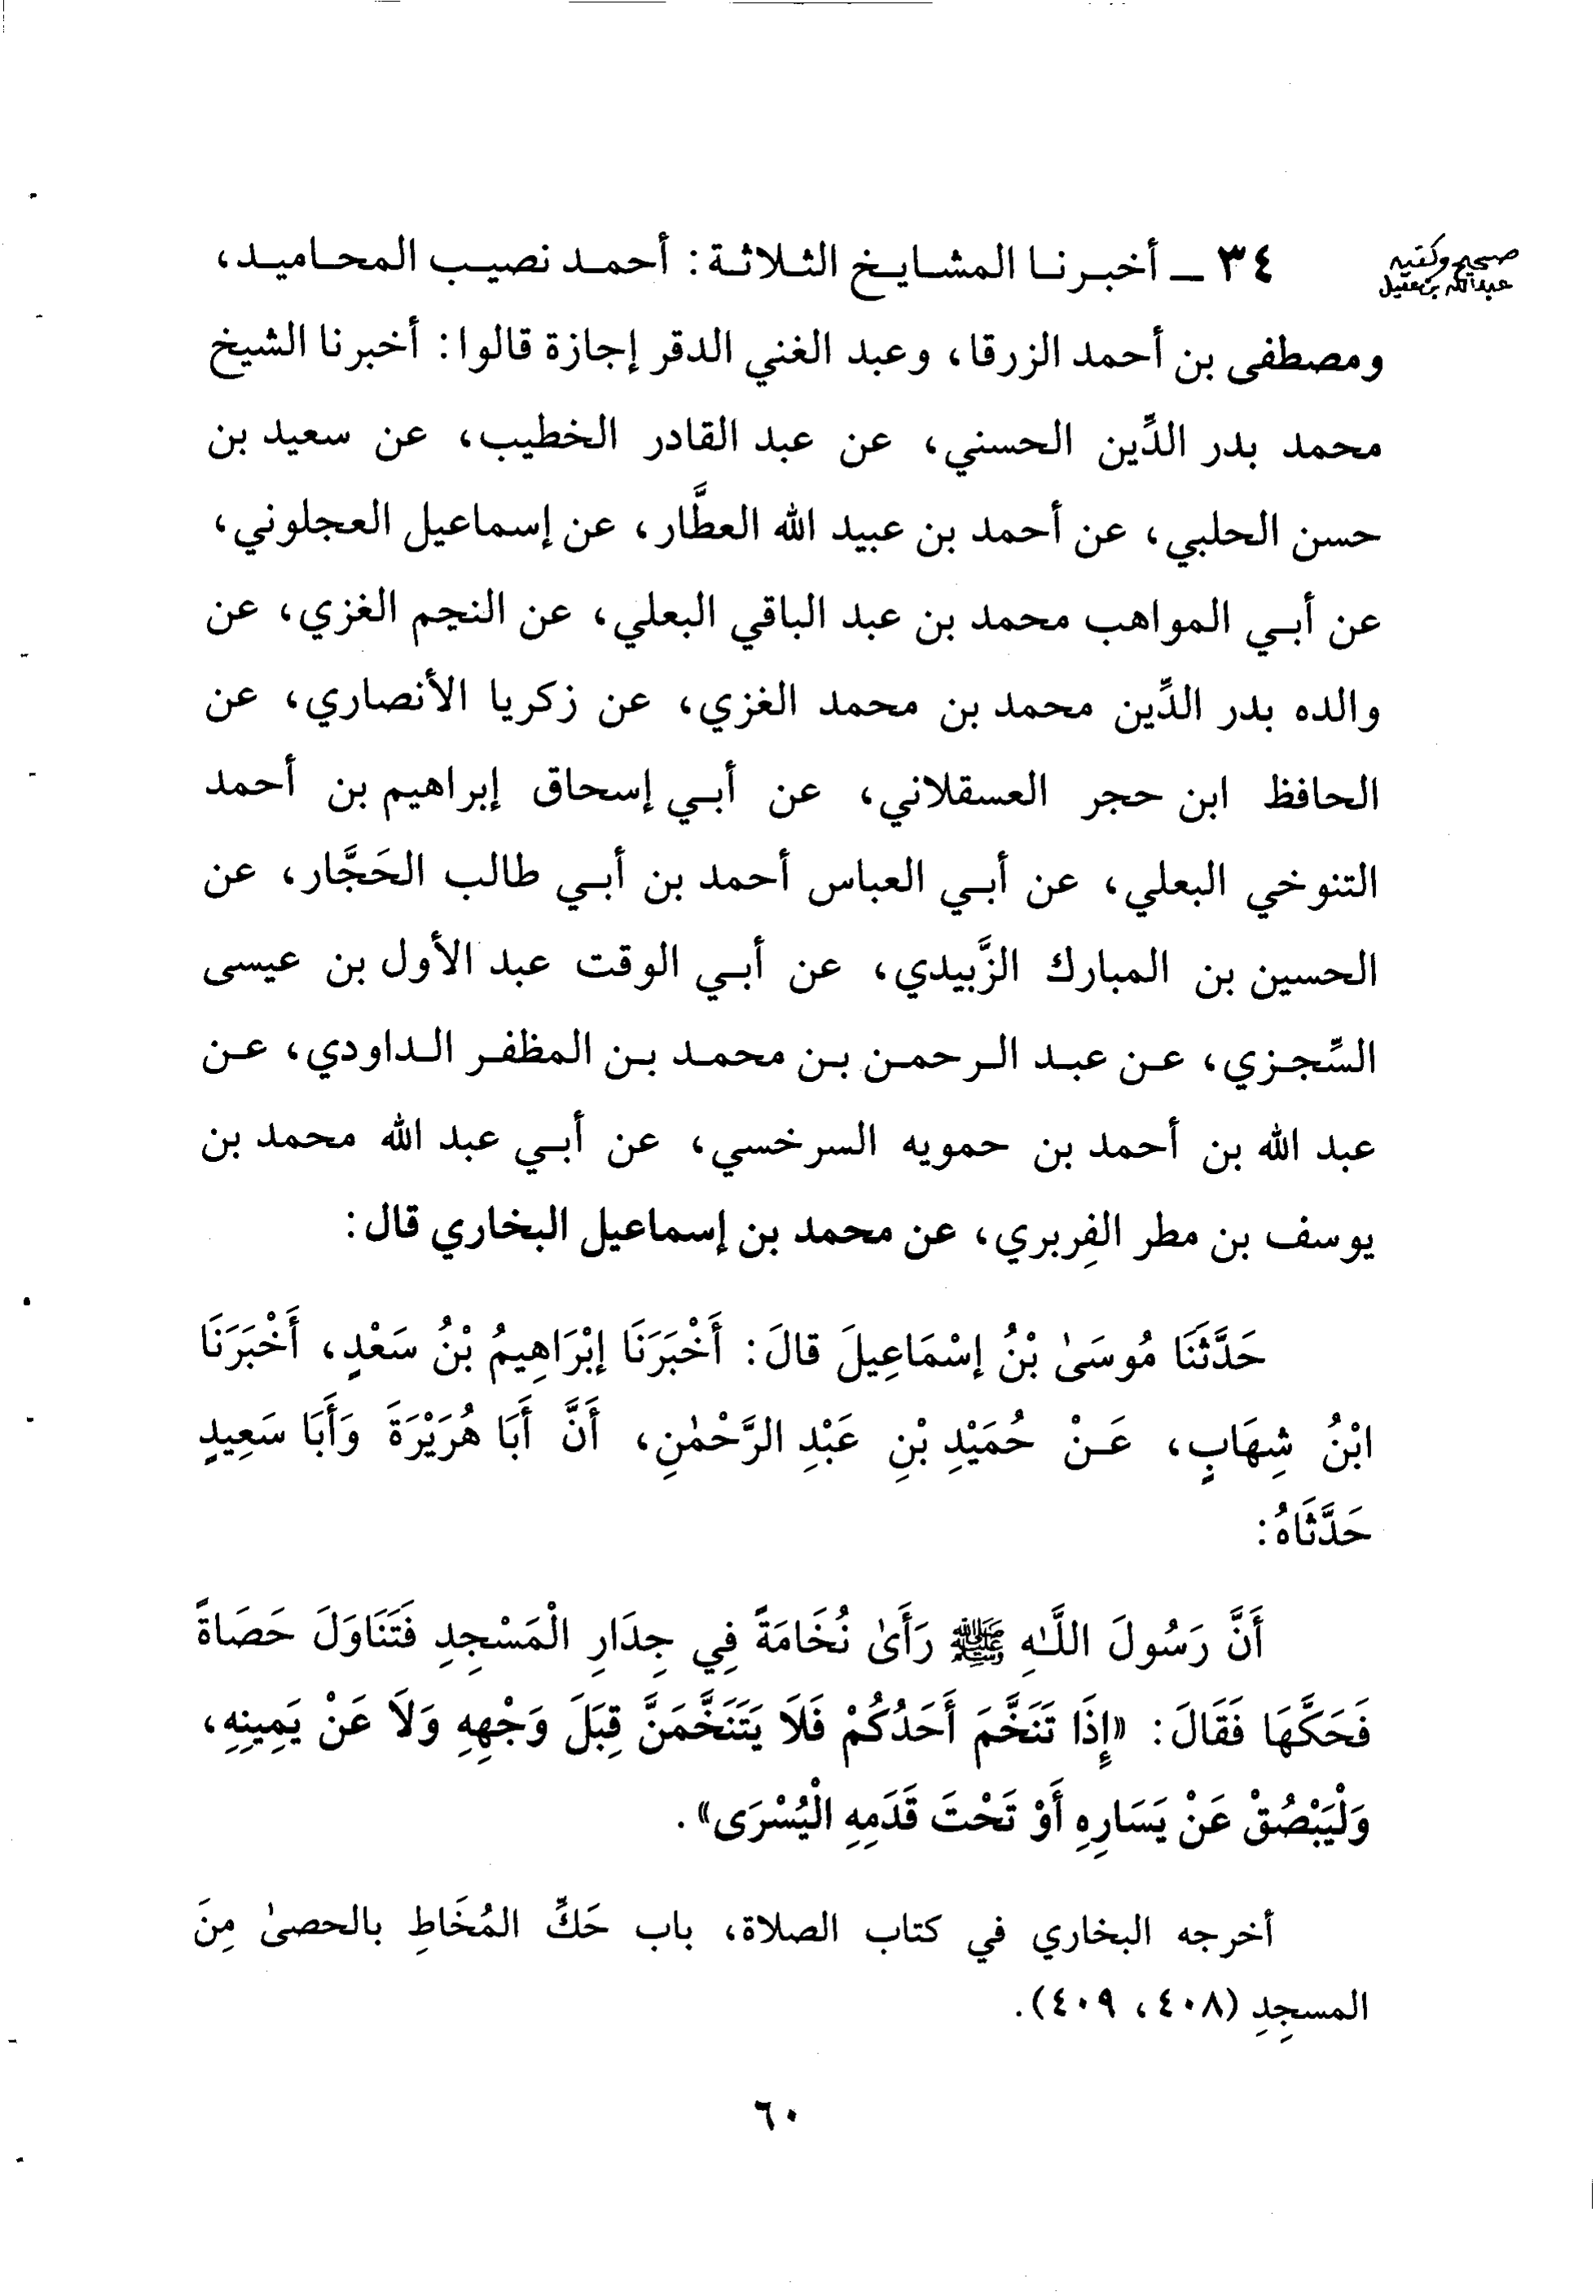 صحيح وكتبه
عبدالله بن عقيل
٣٤ ــ أخبرنا المشايخ الثلاثة: أحمد نصيب المحاميد،
ومصطفى بن أحمد الزرقا، وعبد الغني الدقر إجازة قالوا: أخبرنا الشيخ
محمد بدر الدِّين الحسني، عن عبد القادر الخطيب، عن سعيد بن
حسن الحلبي، عن أحمد بن عبيد الله العطَّار، عن إسماعيل العجلوني،
عن أبي المواهب محمد بن عبد الباقي البعلي، عن النجم الغزي، عن
والده بدر الدِّين محمد بن محمد الغزي، عن زكريا الأنصاري، عن
الحافظ ابن حجر العسقلاني، عن أبي إسحاق إبراهيم بن أحمد
التنوخي البعلي، عن أبي العباس أحمد بن أبي طالب الحَجَّار، عن
الحسين بن المبارك الزَّبيدي، عن أبي الوقت عبد الأول بن عيسى
السِّجزي، عن عبد الرحمن بن محمد بن المظفر الداودي، عن
عبد الله بن أحمد بن حمويه السرخسي، عن أبي عبد الله محمد بن
يوسف بن مطر الفِربري، عن محمد بن إسماعيل البخاري قال:
حَدَّثَنَا مُوسَىٰ بْنُ إِسْمَاعِيلَ قالَ: أَخْبَرَنَا إِبْرَاهِيمُ بْنُ سَعْدٍ، أَخْبَرَنَا
ابْنُ شِهَابٍ، عَنْ حُمَيْدِ بْنِ عَبْدِ الرَّحْمٰنِ، أَنَّ أَبَا هُرَيْرَةَ وَأَبَا سَعِيدٍ
حَدَّثَاهُ:
أَنَّ رَسُولَ اللَّـٰهِ ﷺ رَأَىٰ نُخَامَةً فِي جِدَارِ الْمَسْجِدِ فَتَنَاوَلَ حَصَاةً
فَحَكَّهَا فَقَالَ: «إِذَا تَنَخَّمَ أَحَدُكُمْ فَلَا يَتَنَخَّمَنَّ قِبَلَ وَجْهِهِ وَلَا عَنْ يَمِينِهِ،
وَلْيَبْصُقْ عَنْ يَسَارِهِ أَوْ تَحْتَ قَدَمِهِ الْيُسْرَى».
أخرجه البخاري في كتاب الصلاة، باب حَكِّ المُخَاطِ بالحصىٰ مِنَ
المسجِدِ (٤٠٨، ٤٠٩).
٦٠